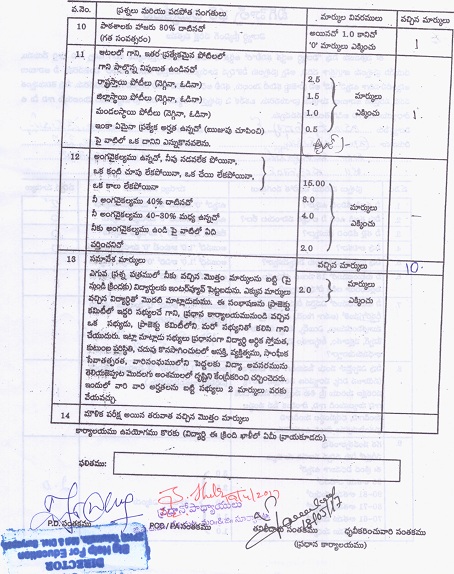 వ.నెం. ప్రశ్నలు మరియు పడపోత సంగతులు మార్కుల వివరములు వచ్చిన మార్కులు
10 పాఠశాలకు హాజరు 80% దాటినదో అయినచో 1.0 కానిచో
(గత సంవత్సరం) '0' మార్కులు ఎక్కించు 1
11 ఆటలలో గాని, ఇతర ప్రత్యేకమైన పోటీలలో
గాని పాల్గొన్న నిపుణత ఉండినచో
రాష్ట్రస్థాయి పోటీలు (నెగ్గినా, ఓడినా) 2.5
జిల్లాస్థాయి పోటీలు (నెగ్గినా, ఓడినా) 1.5 మార్కులు
మండలస్థాయి పోటీలు (నెగ్గినా, ఓడినా) 1.0 ఎక్కించు 1
ఇంకా ఏమైనా ప్రత్యేక అర్హత ఉన్నచో (ఋజువు చూపించి) 0.5
పై వాటిలో ఒక దానిని ఎన్నుకొనవలెను.
12 అంగవైకల్యము ఉన్నచో, నీవు నడవలేక పోయినా,
ఒక కంటి చూపు లేకపోయినా, ఒక చేయి లేకపోయినా,
ఒక కాలు లేకపోయినా 16.00
నీ అంగవైకల్యము 40% దాటినచో 8.0 మార్కులు
నీ అంగవైకల్యము 40-30% మధ్య ఉన్నచో 4.0 ఎక్కించు
నీకు అంగవైకల్యము ఉండి పై వాటిలో ఏది
వర్తించనిచో 2.0
13 సమావేశ మార్కులు వచ్చిన మార్కులు 10
ఎగువ ప్రశ్న పత్రములో నీకు వచ్చిన మొత్తం మార్కులను బట్టి (పై
నుండి క్రిందకు) విద్యార్థులకు ఇంటర్వ్యూన్ పెట్టబడును. ఎక్కువ మార్కులు 2.0 మార్కులు
వచ్చిన విద్యార్థితో మొదటి మాట్లాడుదుము. ఈ సంభాషణను ప్రాజెక్టు ఎక్కించు
కమిటీలో ఇద్దరి సభ్యులచే గాని, ప్రధాన కార్యాలయమునుండి వచ్చిన
ఒక సభ్యుడు, ప్రాజెక్టు కమిటీలోని మరో సభ్యునితో కలిసి గాని
చేయుదురు. ఇట్లా మాట్లాడు సభ్యులు ప్రధానంగా విద్యార్థి ఆర్థిక స్తోమత,
కుటుంబ పరిస్థితి, చదువు కొనసాగించుటలో ఆసక్తి, వ్యక్తిత్వము, సాంఘిక
సేవాతత్పరత, వారిసంఘములోని పెద్దలకు విద్యా అవసరమును
తెలియజెప్పుట మొదలగు అంశములలో దృష్టిని కేంద్రీకరించి చర్చించెదరు.
ఇందులో వారి వారి అర్హతలను బట్టి సభ్యులు 2 మార్కులు వరకు
వేయవచ్చు.
14 మౌళిక పరీక్ష అయిన తరువాత వచ్చిన మొత్తం మార్కులు
కార్యాలయము ఉపయోగము కొరకు (విద్యార్థి ఈ క్రింది ఖాళీలో ఏమీ వ్రాయకూడదు).
ఫలితము:
P.D. సంతకము POD/ PA సంతకము తనిఖీదారు సంతకము ధృవీకరించువారి సంతకము
(ప్రధాన కార్యాలయము)
18/05/17
DIRECTOR
Big Help For Education